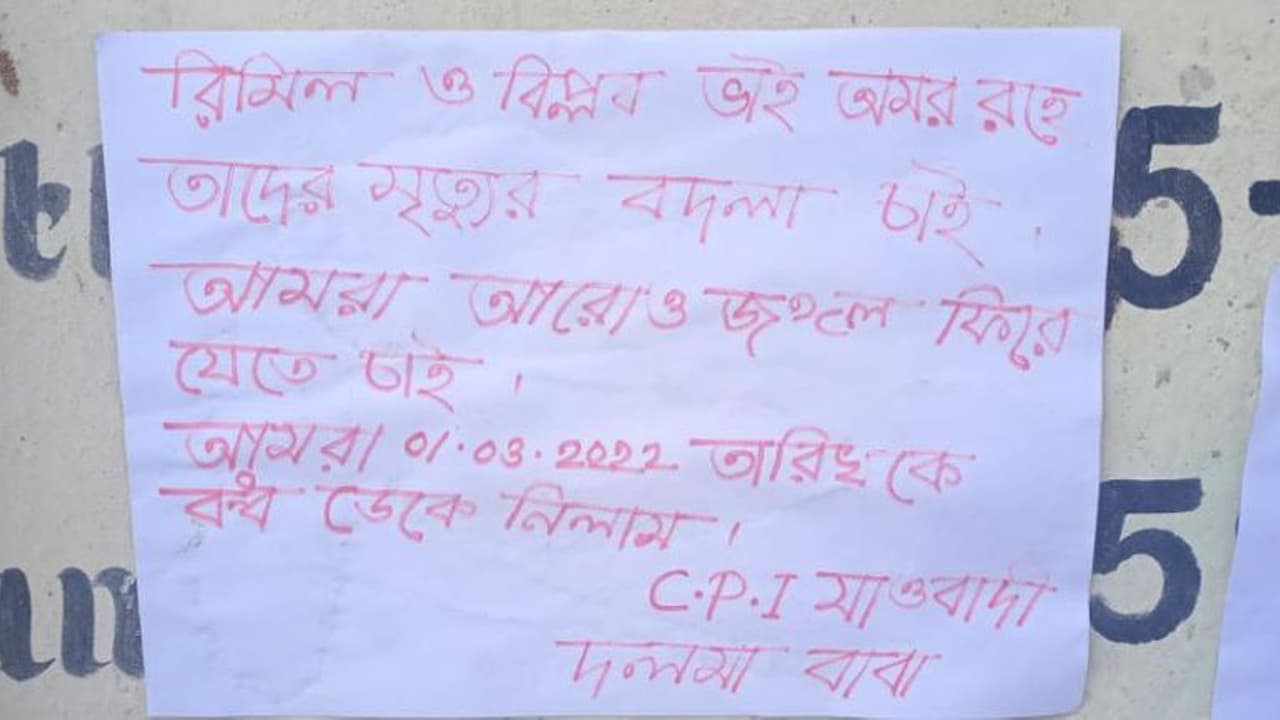 রিমিল ও বিপ্লব ভাই অমর রহে
তাদের মৃত্যুর বদলা চাই .
আমরা আরোও জংগলে ফিরে
যেতে চাই ।
আমরা 01.03.2022 তারিখ কে
বন্ধ ডেকে নিলাম ।
C.P.I মাওবাদী
দলমা বাবা
5-
5